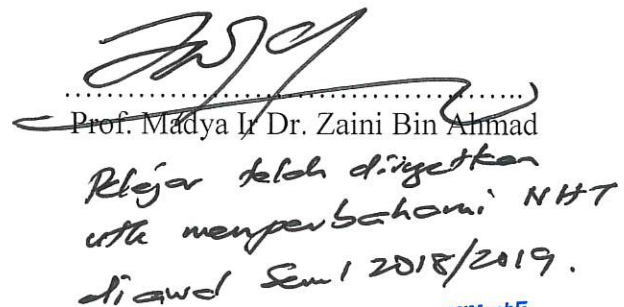 Prof. Madya Ir Dr. Zaini Bin Ahmad
Pelajar telah diingatkan
utk memperbaharui NHT
diawal Sem 1 2018/2019.